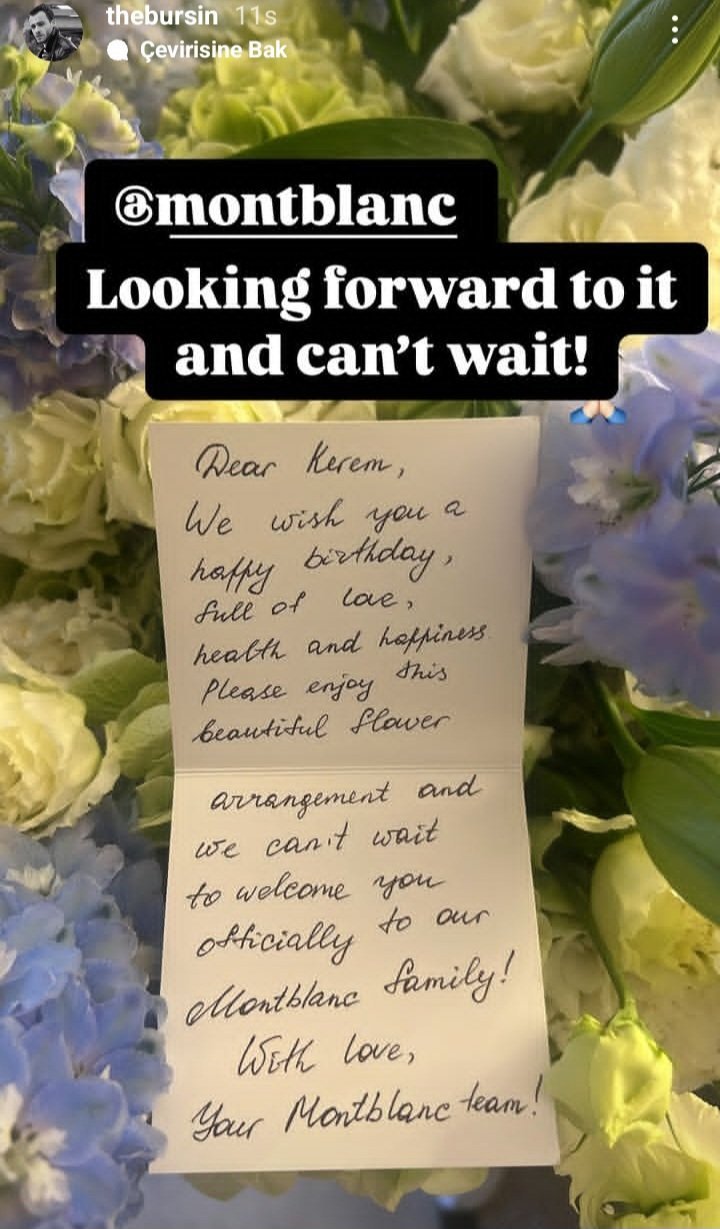 thebursin 11s
Çevirisine Bak
@montblanc
Looking forward to it
and can't wait!
Dear Kerem,
We wish you a
happy birthday,
full of love,
health and happiness.
Please enjoy this
beautiful flower
arrangement and
we can't wait
to welcome you
officially to our
Montblanc family!
With love,
Your Montblanc team!